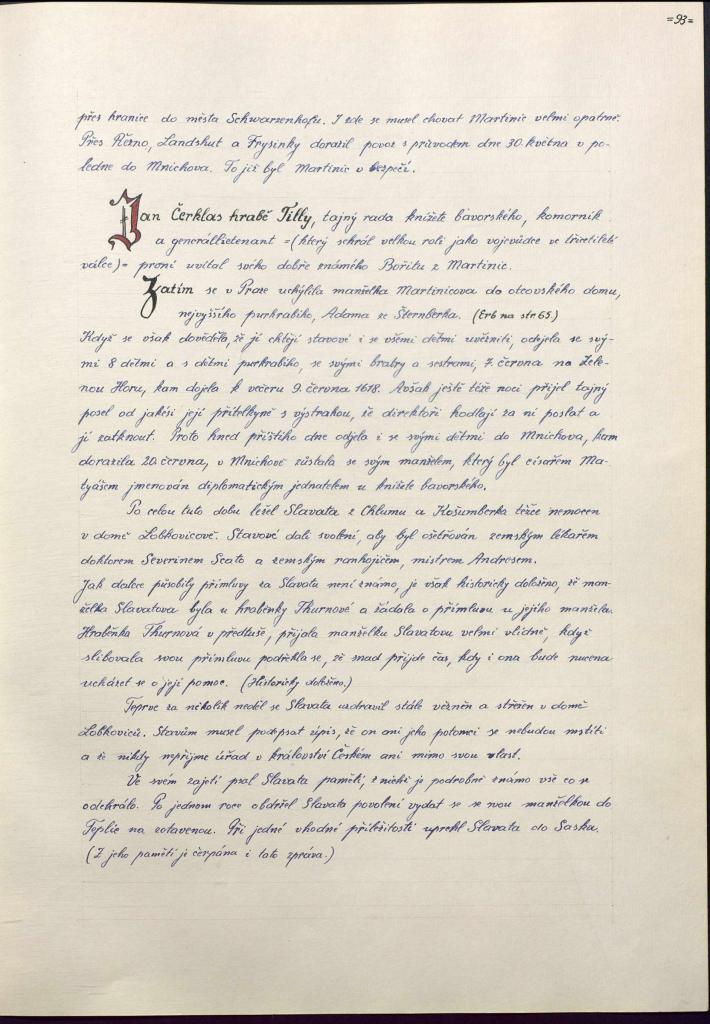 =93=
přes hranice do města Schwarzenhofu. I zde se musel chovat Martinic velmi opatrně.
Přes Řezno, Landshut a Frysinky dorazil povoz s průvodem dne 30. května v po-
ledne do Mnichova. To již byl Martinic v bezpečí.
Jan Čerklas hrabě Tilly, tajný rada knížete bavorského, komorník
a generállietenant =(který sehrál velkou roli jako vojevůdce ve třicetileté
válce)= první uvítal svého dobře známého Bořitu z Martinic.
Zatím se v Praze uchýlila manželka Martinicova do otcovského domu,
nejvyššího purkrabího, Adama ze Šternberka. (Erb na str 65.)
Když se však dověděla, že jí chtějí stavové i se všemi dětmi uvězniti, odjela se svý-
mi 8 dětmi a s dětmi purkrabího, se svými bratry a sestrami, 7. června na Zele-
nou Horu, kam dojela k večeru 9. června 1618. Avšak ještě téže noci přijel tajný
posel od jakési její přítelkyně s výstrahou, že direktoři hodlají za ní poslat a
jí zatknout. Proto hned příštího dne odjela i se svými dětmi do Mnichova, kam
dorazila 20. června, v Mnichově zůstala se svým manželem, který byl císařem Ma-
tyášem jmenován diplomatickým jednatelem u knížete bavorského.
Po celou tuto dobu ležel Slavata z Chlumu a Košumberka těžce nemocen
v domě Lobkovicově. Stavové dali svolení, aby byl ošetřován zemským lékařem
doktorem Severinem Scato a zemským ranhojičem, mistrem Andresem.
Jak dalece působily přímluvy za Slavatu není známo, je však historicky doloženo, že man-
želka Slavatova byla u hraběnky Thurnové a žádala o přímluvu u jejího manžela.
Hraběnka Thurnová v předtuše, přijala manželku Slavatovu velmi vlídně, když
slibovala svou přímluvu podřekla se, že snad přijde čas, kdy i ona bude nucena
ucházet se o její pomoc. (Historicky doloženo.)
Teprve za několik neděl se Slavata uzdravil stále vězněn a střežen v domě
Lobkoviců. Stavům musel podepsat zápis, že on ani jeho potomci se nebudou mstíti
a že nikdy nepřijme úřad v království Českém ani mimo svou vlast.
Ve svém zajetí psal Slavata paměti, z nichž je podrobně známo vše co se
odehrálo. Po jednom roce obdržel Slavata povolení vydat se se svou manželkou do
Teplic na zotavenou. Při jedné vhodné příležitosti uprchl Slavata do Saska.
(Z jeho pamětí je čerpána i tato zpráva.)